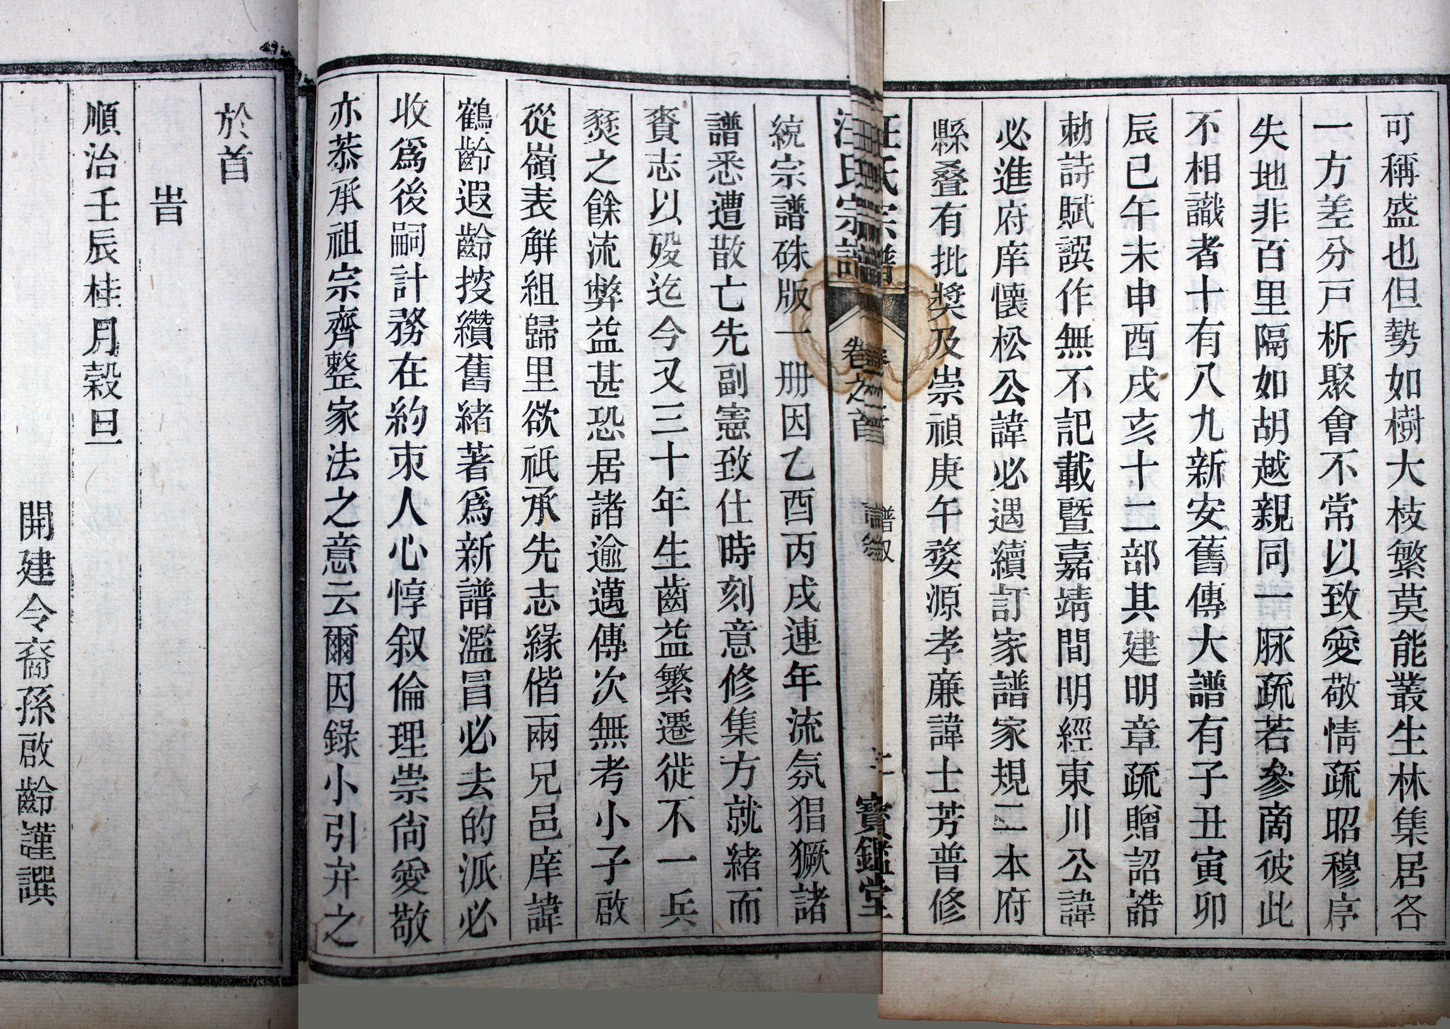 可稱盛也但勢如樹大枝繁莫能叢生林集居各
一方差分戸析聚會不常以致愛敬情疏昭穆序
失地非百里隔如胡越親同一脉疏若參啇彼此
不相識者十有八九新安舊傳大譜有子丑寅卯
辰巳午未申酉戌亥十二部其建明章疏贈詔誥
勅詩賦譔作無不記載暨嘉靖間明經東川公諱
必進府庠懷松公諱必遇續訂家譜家規二本府
縣叠有批奬及崇禎庚午婺源孝亷諱士芳普修
汪氏宗譜 卷之首 譜叙 二 寳鑑堂
統宗譜硃版一册因乙酉丙戌連年流氛猖獗諸
譜悉遭散亡先副憲致仕時刻意修集方就緒而
賫志以殁迄今又三十年生齒益繁遷徙不一兵
燹之餘流弊益甚恐居諸逾邁傳次無考小子啟
從嶺表解組歸里欲祇承先志緣偕兩兄邑庠諱
鶴齡遐齡按纘舊緒著爲新譜濫冒必去的派必
收爲後嗣計務在約束人心惇叙倫理崇尙愛敬
亦恭承祖宗齊整家法之意云爾因錄小引弁之
於首
旹
順治壬辰桂月穀旦
開建令裔孫啟齡謹譔